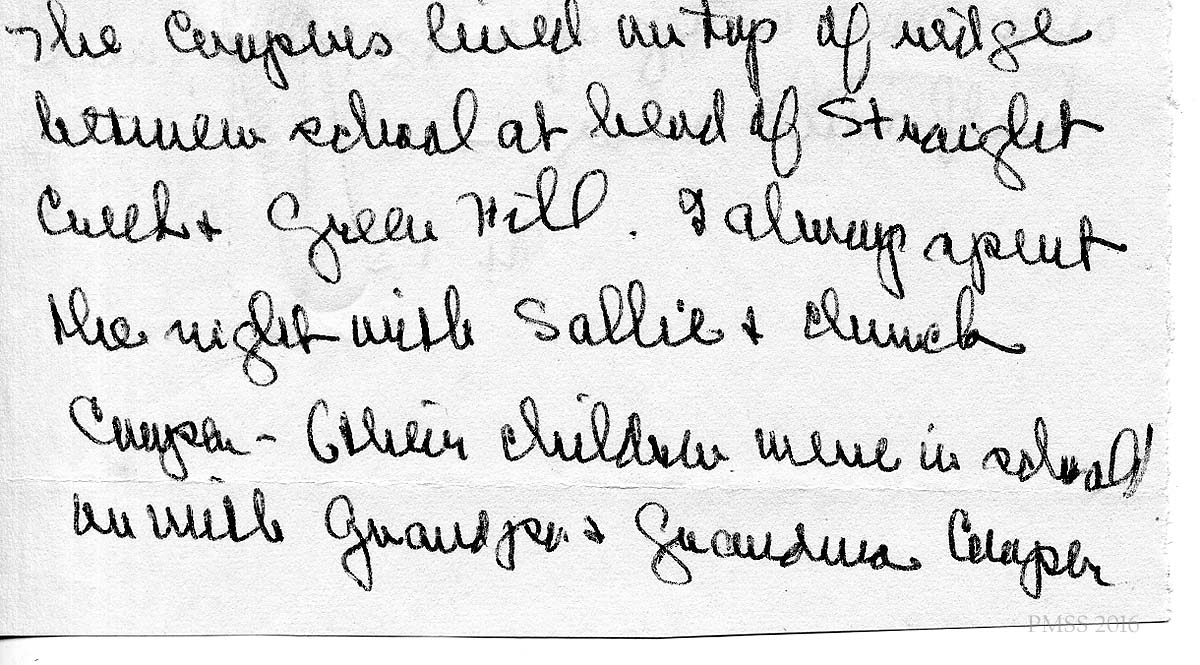 The Coopers lived on top of ridge
between school at head of Straight
Creek + Green Hill. I always spent
the night with Sallie + Chuck
Cooper - (their children were in school)
or with Grandpa + Grandma Cooper
PMSS 2016